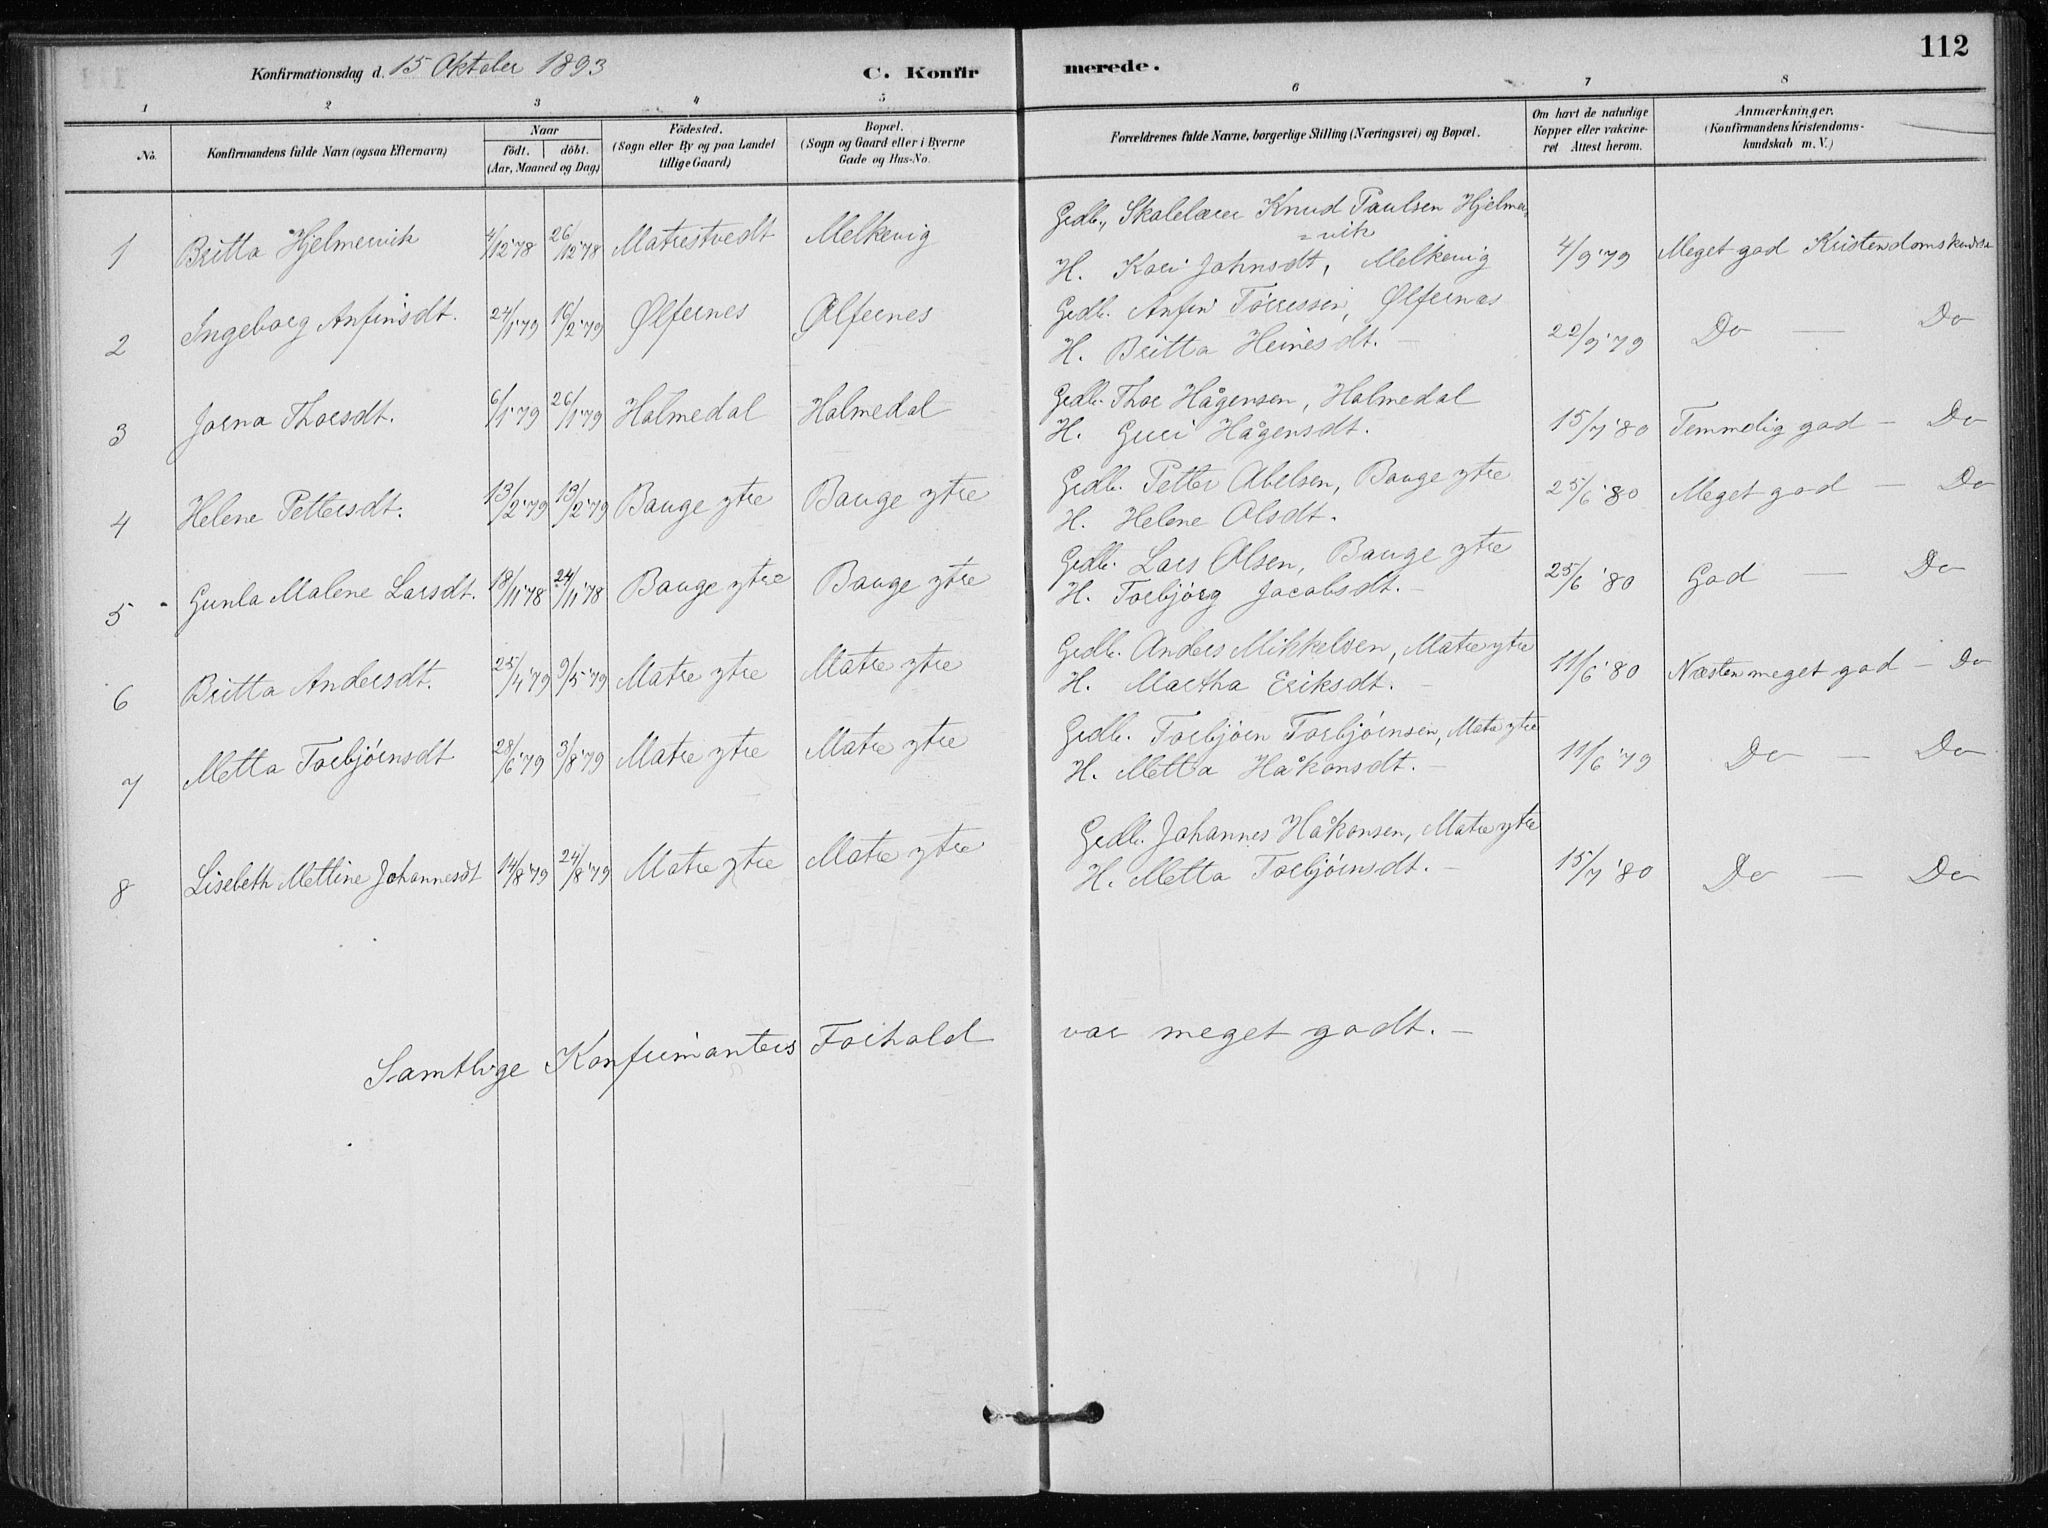 Konfirmationsdag d. 15 Oktober 1893 C. Konfir merede. 112
1 2 3 4 5 6 7 8
No. Konfirmandens fulde Navn (ogsaa Efternavn) Naar födt. döbt. (Aar, Maaned og Dag) Födested. (Sogn eller By og paa Landet tillige Gaard) Bopæl. (Sogn og Gaard eller i Byerne Gade og Hus-No. Forældrenes fulde Navne, borgerlige Stilling (Næringsvei) og Bopæl. Om havt de naturlige Kopper eller vakcineret Attest herom. Anmærkninger. (Konfirmandens Kristendomskundskab m. V.)
1 Britta Hjelmervik 4/12'78 26/12'78 Matrestvedt Melkevig Grdb., Skolelærer Knud Paulsen Hjelmer=vik
H. Kari Johnsdt, Melkevig 4/9'79 Meget god Kristendomskundsk
2 Ingeborg Anfinsdt. 24/1'79 16/2'79 Ølfernes Ølfernes Grdb. Anfin Tørressen, Ølfernes
H. Britta Heinesdt. - 22/9'79 Do — Do
3 Jorna Thorsdt. 6/1'79 26/1'79 Holmedal Holmedal Grdb. Thor Hågensen, Holmedal
H. Guri Hågensdt. 15/7'80 Temmelig god - Do
4 Helene Pettersdt. 13/2'79 13/2'79 Bauge ytre Bauge ytre Grdb. Petter Abelsen, Bauge ytre
H. Helene Olsdt. 25/6'80 Meget god - Do
5 Gunla Malene Larsdt. 18/11'78 24/11'78 Bauge ytre Bauge ytre Grdb. Lars Olsen, Bauge ytre
H. Torbjørg Jacobsdt. - 25/6'80 God — Do
6 Britta Andersdt. 25/4'79 9/5'79 Matre ytre Matre ytre Grdb. Anders Mikkelsen, Matre ytre
H. Martha Eriksdt. - 11/6'80 Næsten meget god - Do
7 Metta Torbjørnsdt 28/6'79 3/8'79 Matre ytre Matre ytre Grdb. Torbjørn Torbjørnsen, Matre ytre
H. Metta Håkonsdt. - 11/6'79 Do — Do
8 Lisebeth Mettine Johannesdt 14/8'79 24/8'79 Matre ytre Matre ytre Grdb. Johannes Håkonsen, Matre ytre
H. Metta Torbjørnsdt. - 15/7'80 Do — Do
Samtlige Konfirmanters Forhold var meget godt. -